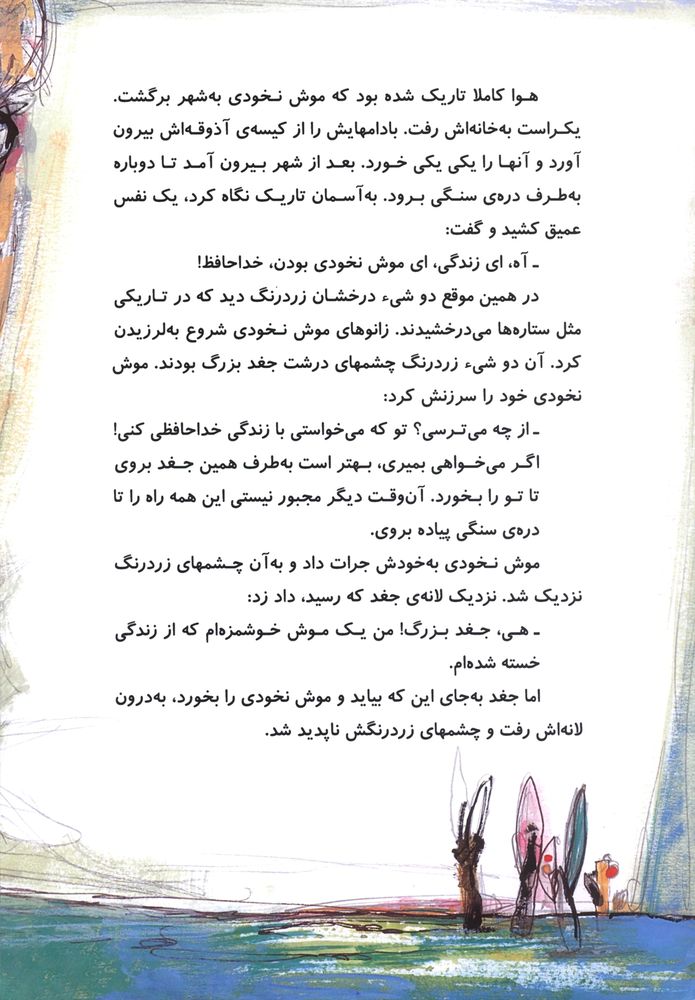 هوا کاملا تاریک شده بود که موش نخودی به‌شهر برگشت.
یکراست به‌خانه‌اش رفت. بادامهایش را از کیسه‌ی آذوقه‌اش بیرون
آورد و آنها را یکی یکی خورد. بعد از شهر بیرون آمد تا دوباره
به‌طرف دره‌ی سنگی برود. به‌آسمان تاریک نگاه کرد، یک نفس
عمیق کشید و گفت:
ـ آه، ای زندگی، ای موش نخودی بودن، خداحافظ!
در همین موقع دو شیء درخشان زردرنگ دید که در تاریکی
مثل ستاره‌ها می‌درخشیدند. زانوهای موش نخودی شروع به‌لرزیدن
کرد. آن دو شیء زردرنگ چشمهای درشت جغد بزرگ بودند. موش
نخودی خود را سرزنش کرد:
ـ از چه می‌ترسی؟ تو که می‌خواستی با زندگی خداحافظی کنی!
اگر می‌خواهی بمیری، بهتر است به‌طرف همین جغد بروی
تا تو را بخورد. آن‌وقت دیگر مجبور نیستی این همه راه را تا
دره‌ی سنگی پیاده بروی.
موش نخودی به‌خودش جرات داد و به‌آن چشمهای زردرنگ
نزدیک شد. نزدیک لانه‌ی جغد که رسید، داد زد:
ـ هی، جغد بزرگ! من یک موش خوشمزه‌ام که از زندگی
خسته شده‌ام.
اما جغد به‌جای این که بیاید و موش نخودی را بخورد، به‌درون
لانه‌اش رفت و چشمهای زردرنگش ناپدید شد.